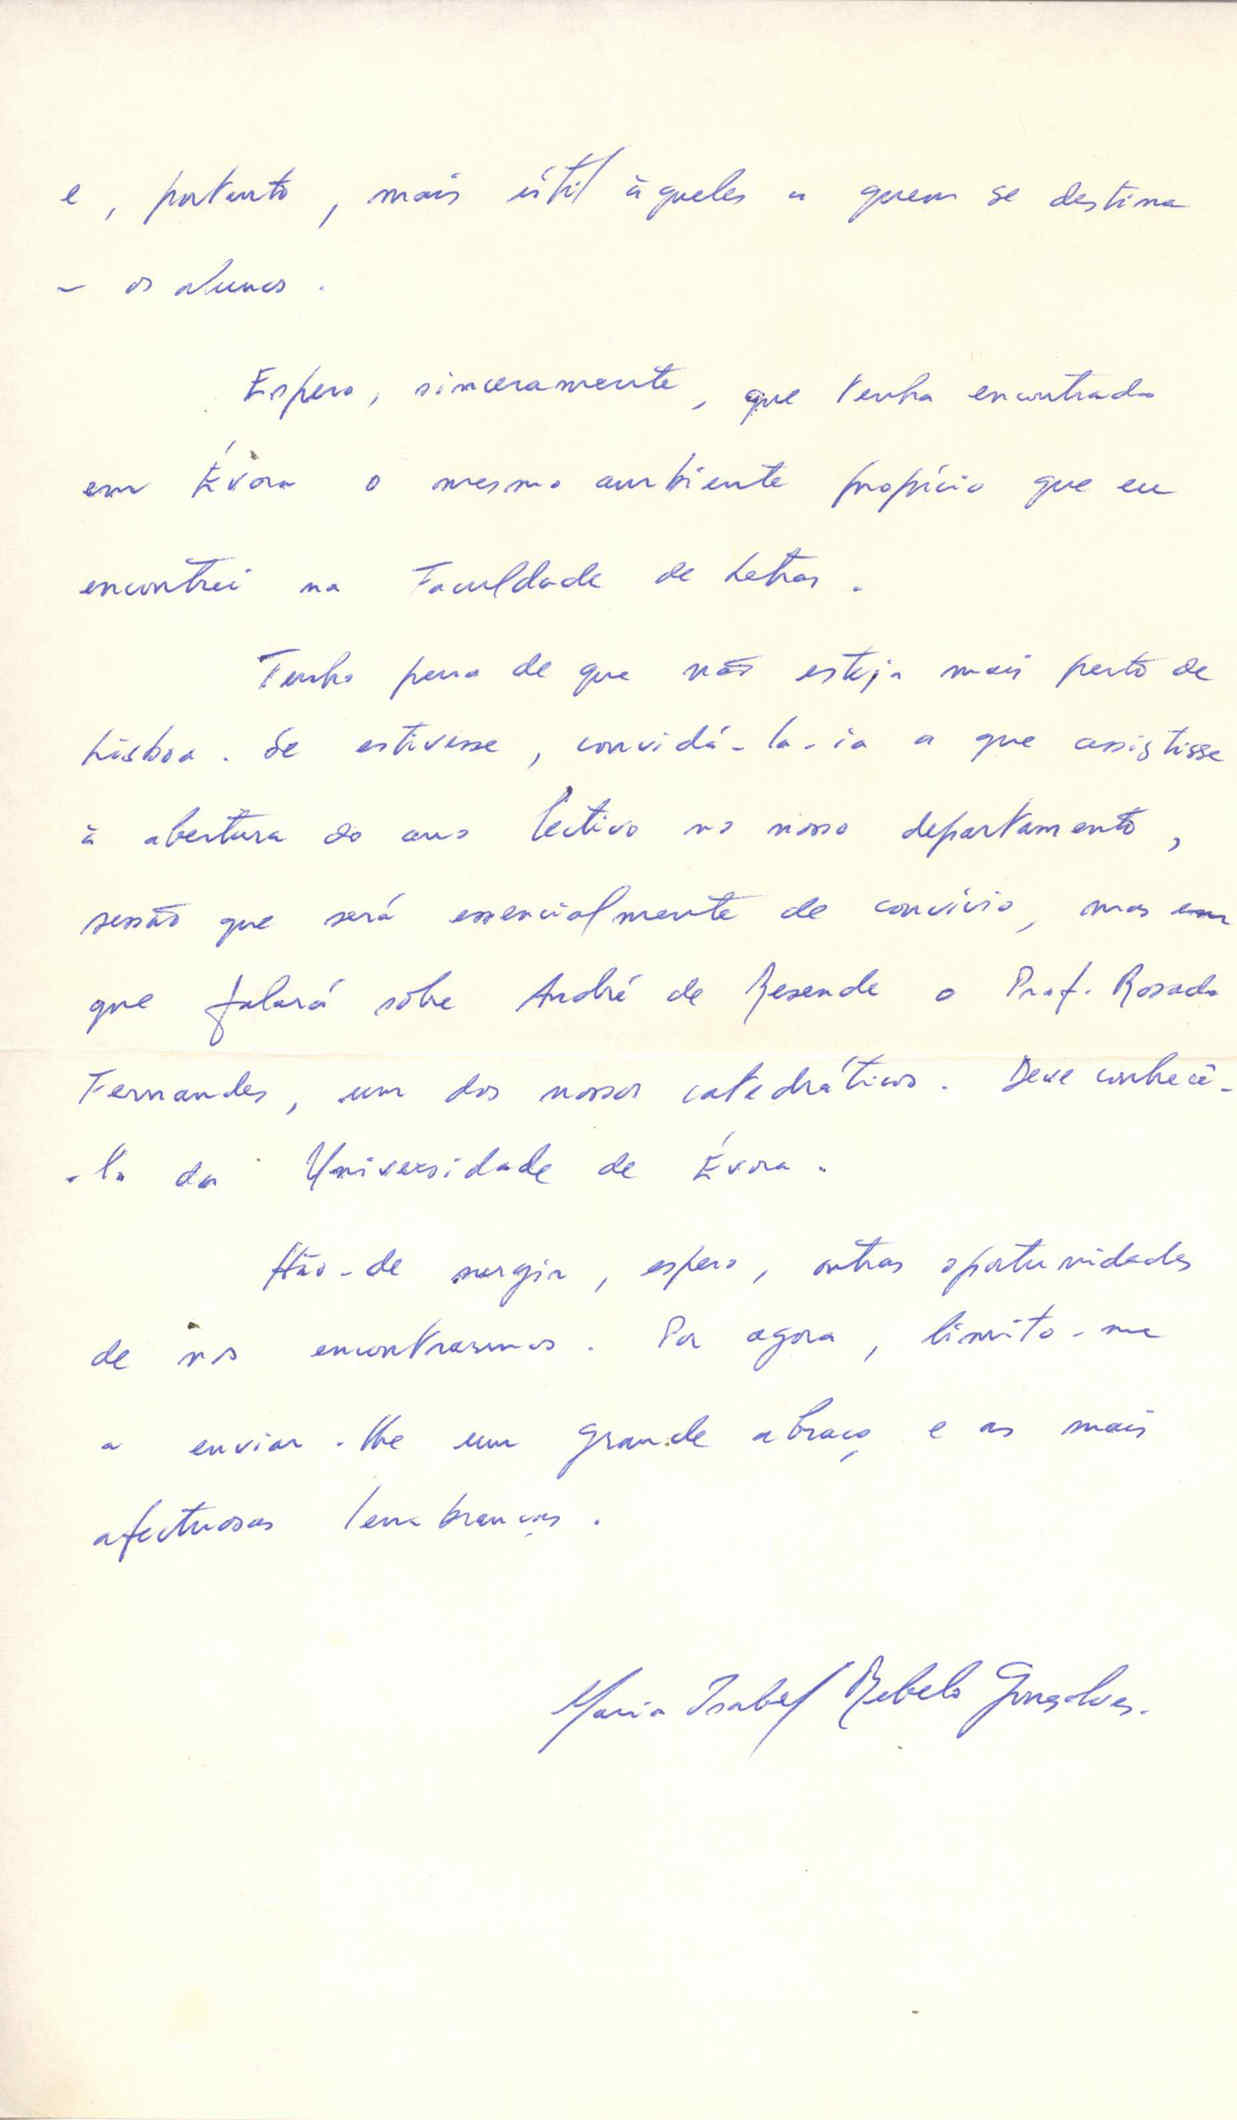 e, portanto, mais útil àqueles a quem se destina
– os alunos.
Espero, sinceramente, que tenha encontrado
em Évora o mesmo ambiente propício que eu
encontrei na Faculdade de Letras.
Tenho pena de que não esteja mais perto de
Lisboa. Se estivesse, convidá-la-ia a que assistisse
à abertura do ano lectivo no nosso departamento,
sessão que será essencialmente de convívio, mas em
que falará sôbre André de Resende o Prof. Rosado
Fernandes, um dos nossos catedráticos. Deve conhecê-
-lo da Universidade de Évora.
Hão-de surgir, espero, outras oportunidades
de nos encontrarmos. Por agora, limito-me
a enviar-lhe um grande abraço e as mais
afectuosas lembranças.
Maria Isabel Rebelo Gonçalves.